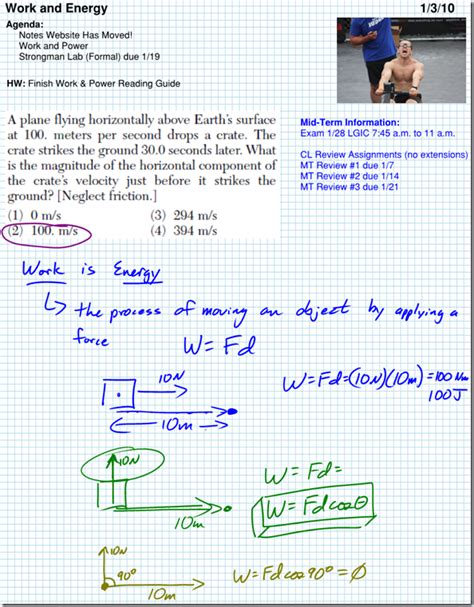 Work and Energy
1/3/10
Agenda:
Notes Website Has Moved!
Work and Power
Strongman Lab (Formal) due 1/19
HW: Finish Work & Power Reading Guide
A plane flying horizontally above Earth's surface
at 100. meters per second drops a crate. The
crate strikes the ground 30.0 seconds later. What
is the magnitude of the horizontal component of
the crate's velocity just before it strikes the
ground? [Neglect friction.]
(1) 0 m/s
(3) 294 m/s
(2) 100. m/s
(4) 394 m/s
Mid-Term Information:
Exam 1/28 LGIC 7:45 a.m. to 11 a.m.
CL Review Assignments (no extensions)
MT Review #1 due 1/7
MT Review #2 due 1/14
MT Review #3 due 1/21
Work is Energy
↳ the process of moving an object by applying a
force
W = Fd
10N
10m
W = Fd = (10N)(10m) = 100 Nm
100J
10N
10m
W = Fd =
W = Fd cosθ
10N
90°
10m
W = Fd cos 90° = Ø